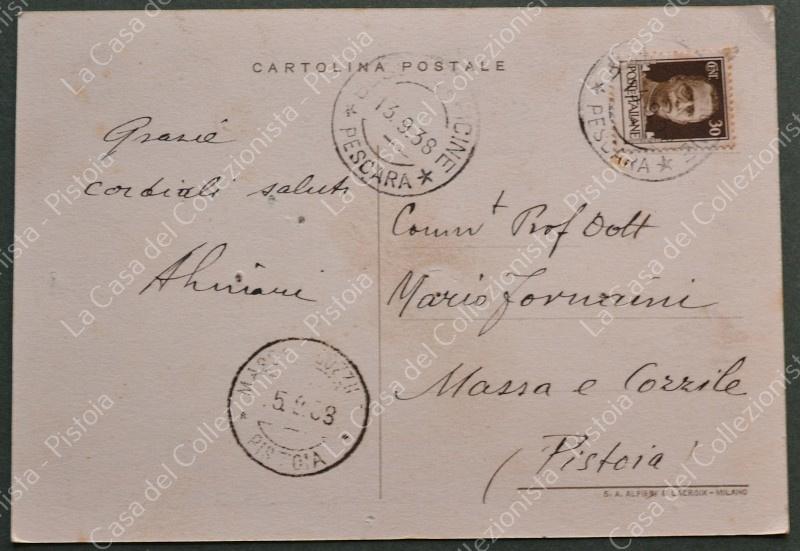 CARTOLINA POSTALE
Grazie
cordiali saluti
Comm t Prof Dott
Mario
Massa e Cozzile
(Pistoia)
13.9.38
PESCARA
PESCARA
POSTE ITALIANE
CENT 30
5.9.38
PISTOIA
S. A. ALFIERI & LACROIX - MILANO
La Casa del Collezionista - Pistoia